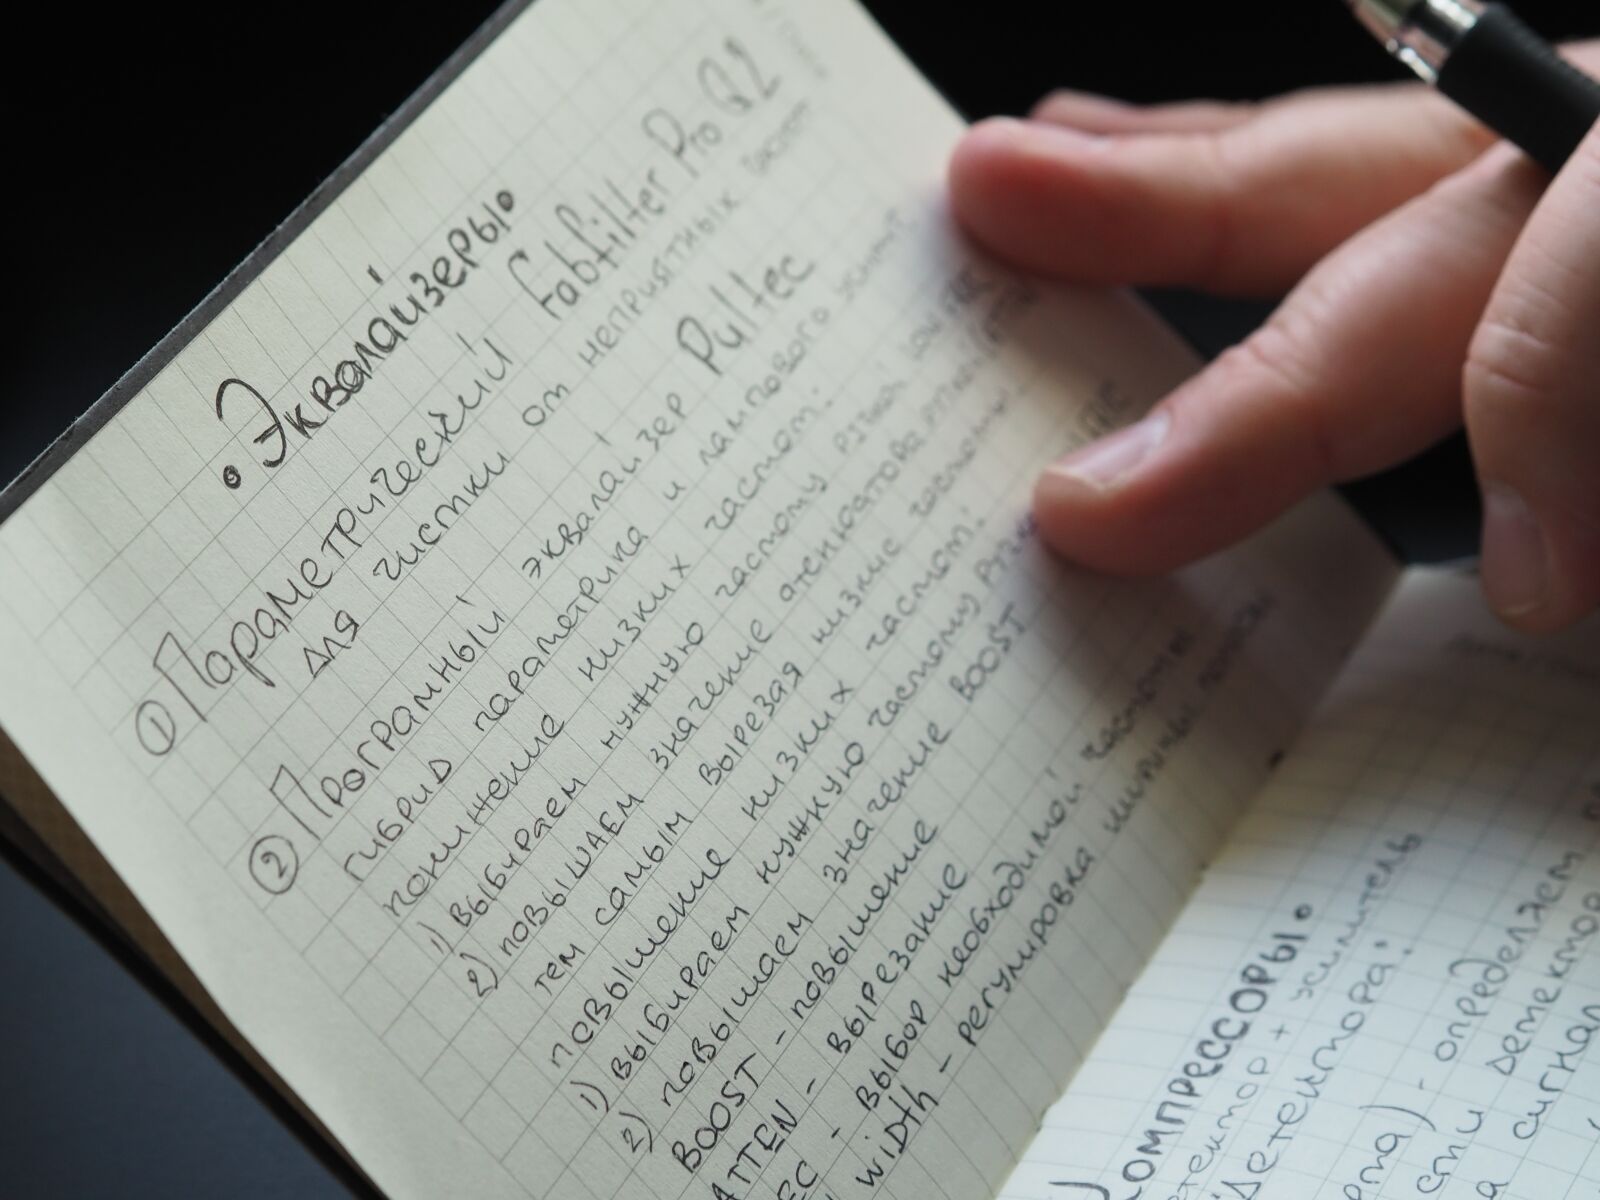 • Эквалайзеры •
① Параметрический Fabfilter Pro Q2
для чистки от неприятных частот
② Програмный эквалайзер Pultec
гибрид параметрика и лампового
понижение низких частот:
1) выбираем нужную частоту ручкой LOW FREQ
2) повышаем значение атенюатора ручкой
тем самым вырезая низкие частоты.
повышение низких частот:
1) выбираем нужную частоту
2) повышаем значение BOOST
BOOST - повышение
ATTEN - вырезание
- выбор необходимой частоты
WIDTH - регулировка ширины полосы
КОМПРЕССОРЫ •
+ усилитель
Детектора:
- определяем
детектор
сигнал